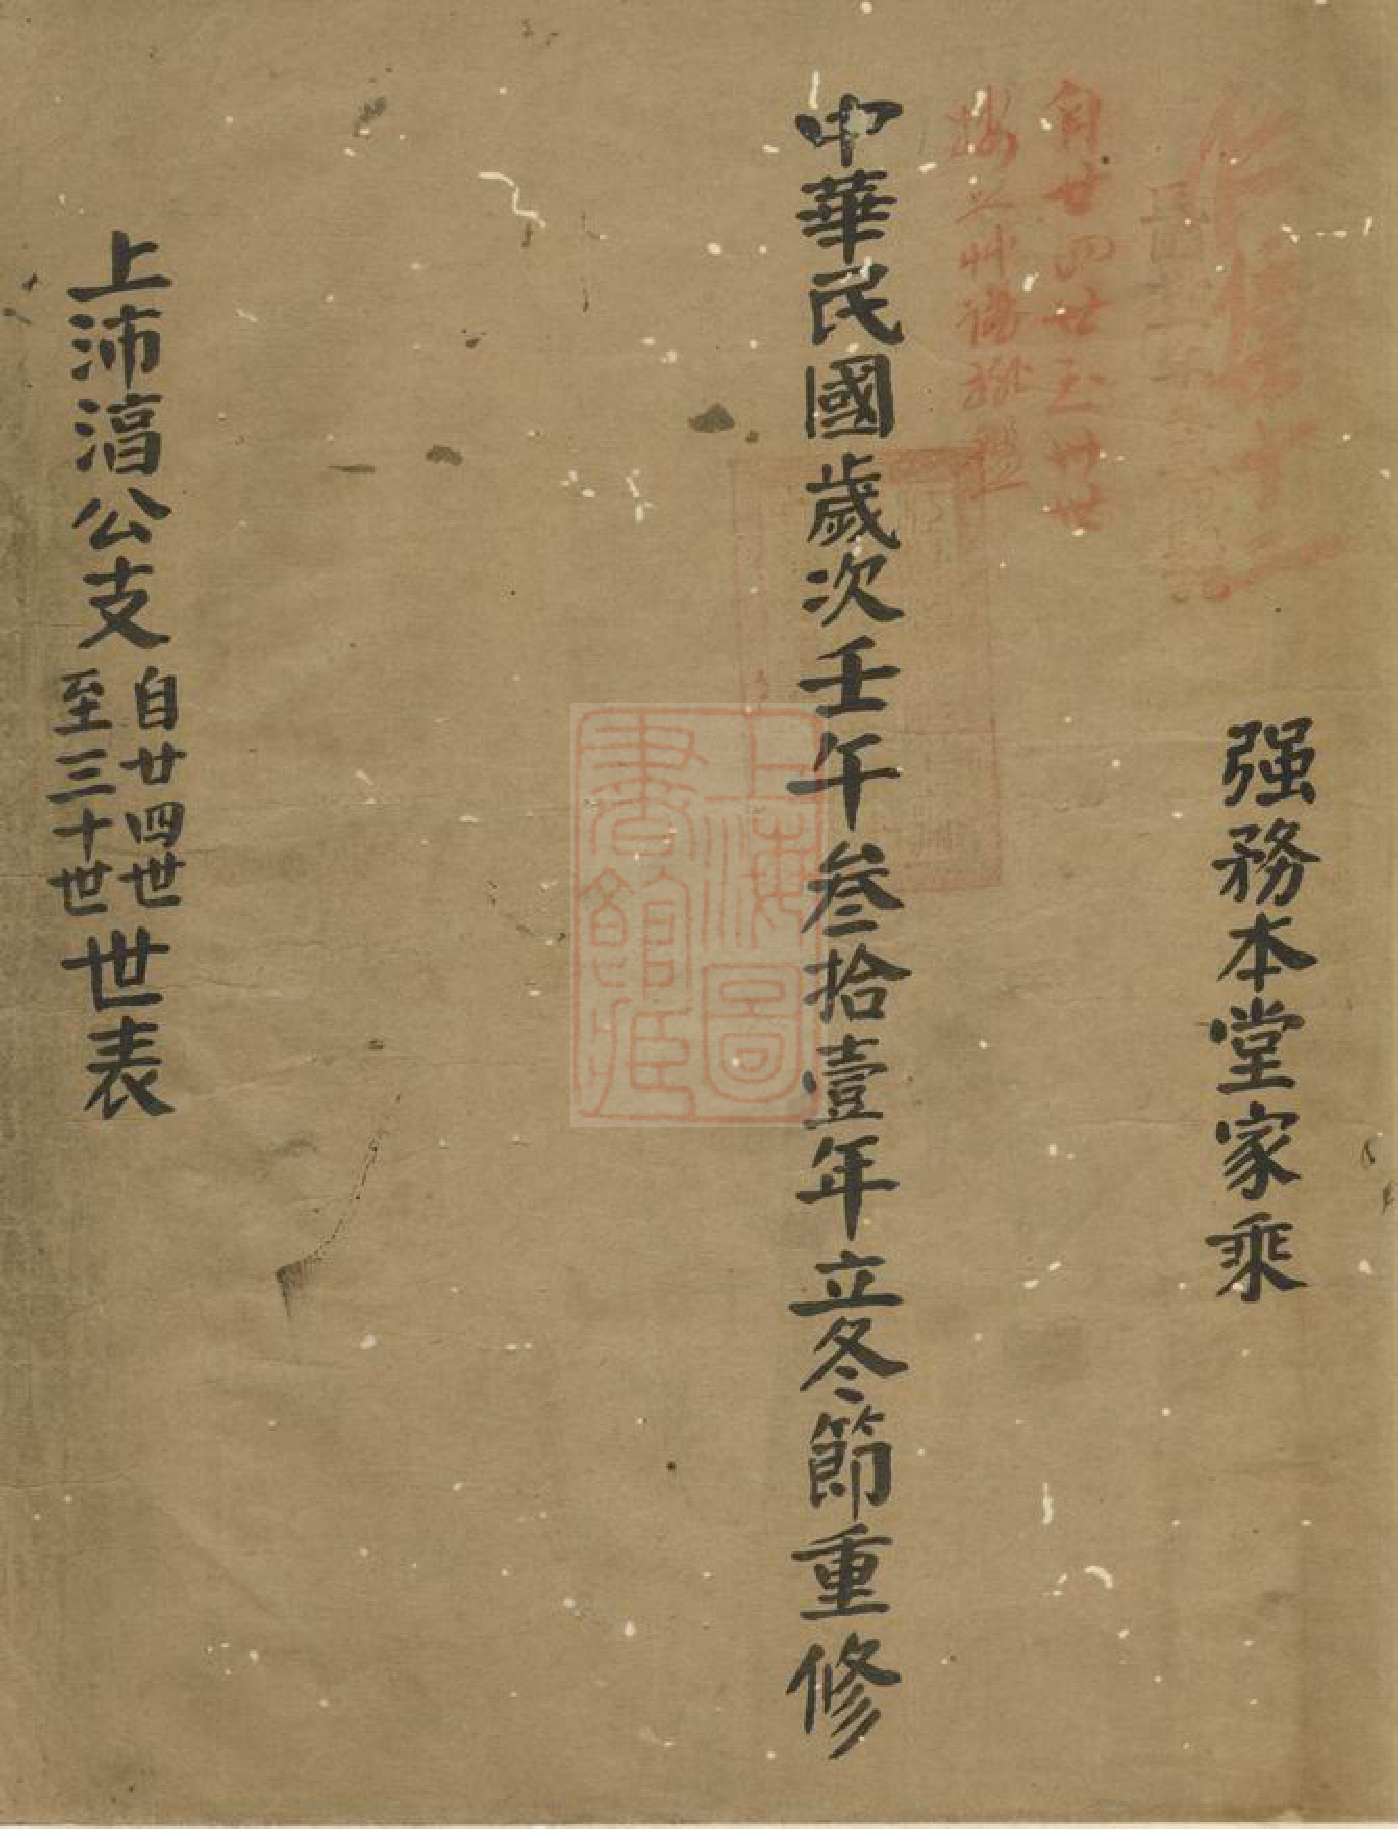 强務本堂家乘
自廿四世至卅世
中華民國歲次壬午叁拾壹年立冬節重修
上海圖書館藏
上沛湻公支
自廿四世
至三十世
世表